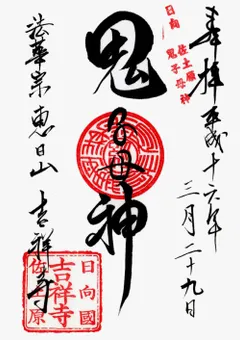 奉拝
平成十六年
三月二十九日
日向
佐土原
鬼子母神
鬼子母神
法華宗 恵日山 吉祥寺
日向國
吉祥寺
佐土原